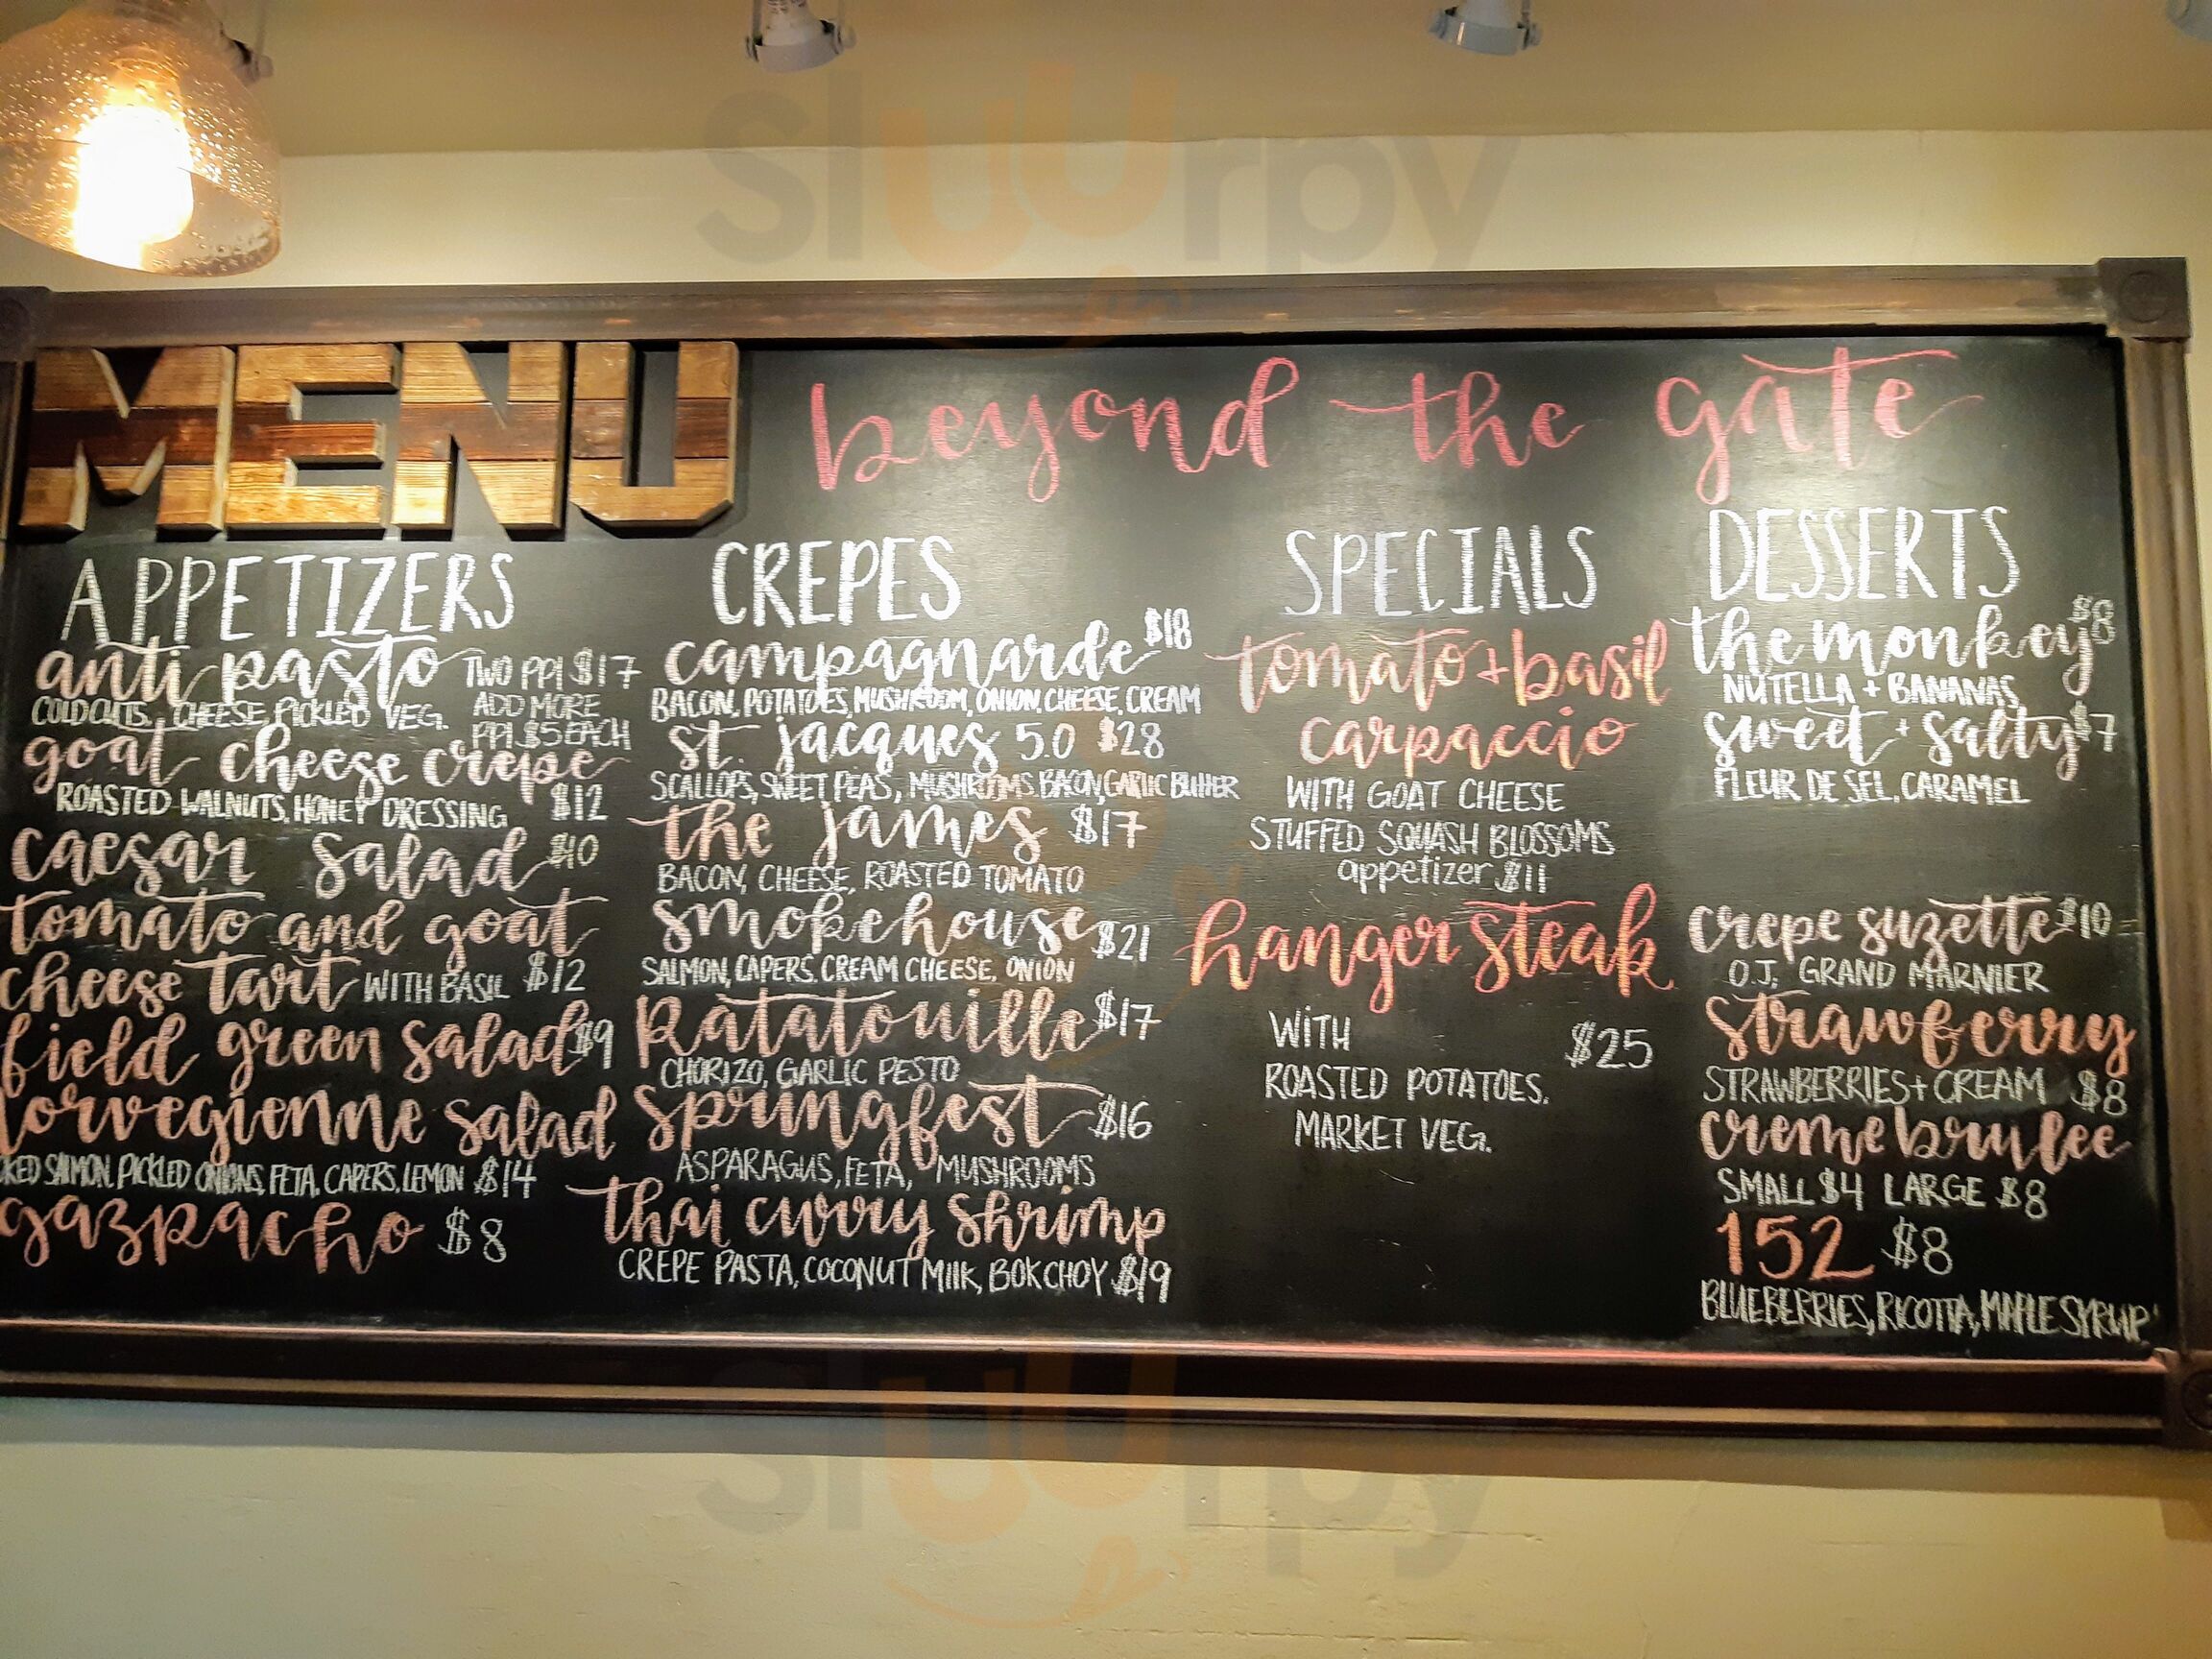 sluurpy
MENU
beyond the gate
APPETIZERS
anti pasto TWO PPl $17
COLD CUTS, CHEESE, PICKLED VEG.
ADD MORE
PPl $5 EACH
goat cheese crepe
ROASTED WALNUTS, HONEY DRESSING $12
caesar salad $10
tomato and goat
cheese tart WITH BASIL $12
field green salad $9
lorvegienne salad
KED SAlMON, PICKLED ONIONS, FETA, CAPERS, LEMON $14
gazpacho $8
CREPES
campagnarde $18
BACON, POTATOES, MUSHROOM, ONION, CHEESE, CREAM
st. jacques 5.0 $28
SCALLOPS, SWEET PEAS, MUSHROOMS, BACON, GARLIC BUTTER
the james $17
BACON, CHEESE, ROASTED TOMATO
smokehouse $21
SALMON, CAPERS, CREAM CHEESE, ONION
Ratatouille $17
CHORIZO, GARLIC PESTO
springfest $16
ASPARAGUS, FETA, MUSHROOMS
thai curry shrimp
CREPE PASTA, COCONUT MIlK, BOK CHOY $19
SPECIALS
tomato + basil
carpaccio
WITH GOAT CHEESE
STUFFED SQUASH BLOSSOMS
appetizer $11
hanger steak
WITH
$25
ROASTED POTATOES.
MARKET VEG.
DESSERTS
the monkey $8
NUTELLA + BANANAS
sweet + salty $7
FLEUR DE SEL, CARAMEL
crepe suzette $10
O.J. GRAND MARNIER
strawberry
STRAWBERRIES + CREAM $8
creme brulee
SMALL $4 LARGE $8
152 $8
BLUEBERRIES, RICOTTA, MAPLE SYRUP
sluurpy